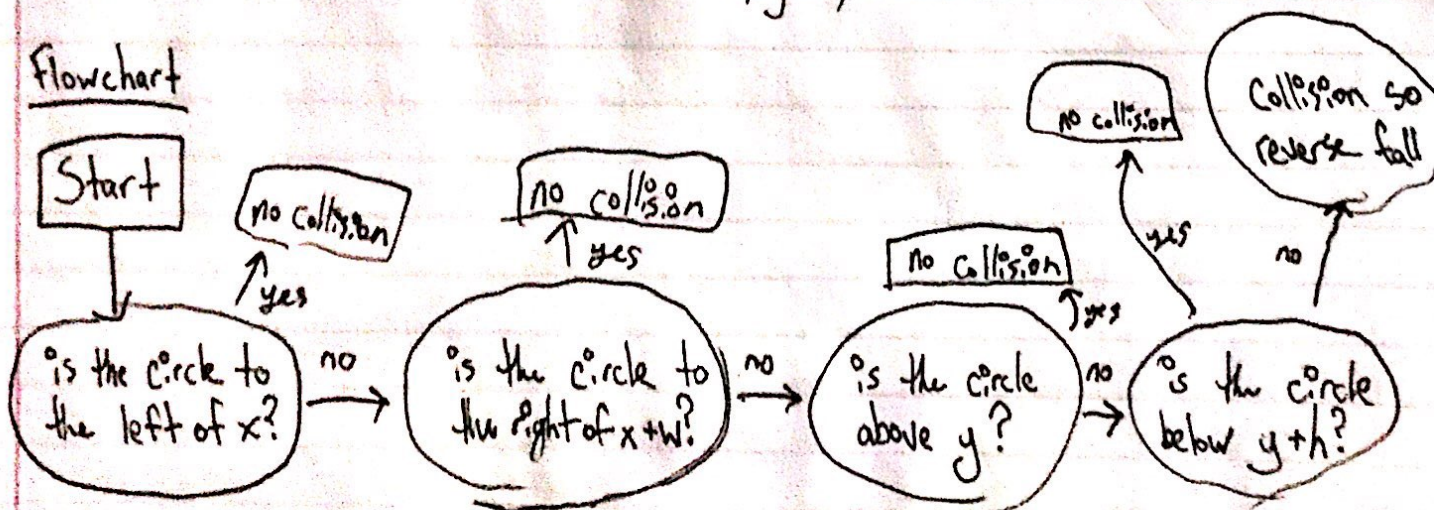 Flowchart
Start
no collision
yes
is the circle to
the left of x?
no
no collision
yes
is the circle to
the right of x+w?
no
no collision
yes
is the circle
above y?
no
no collision
yes
is the circle
below y+h?
no
Collision so
reverse fall